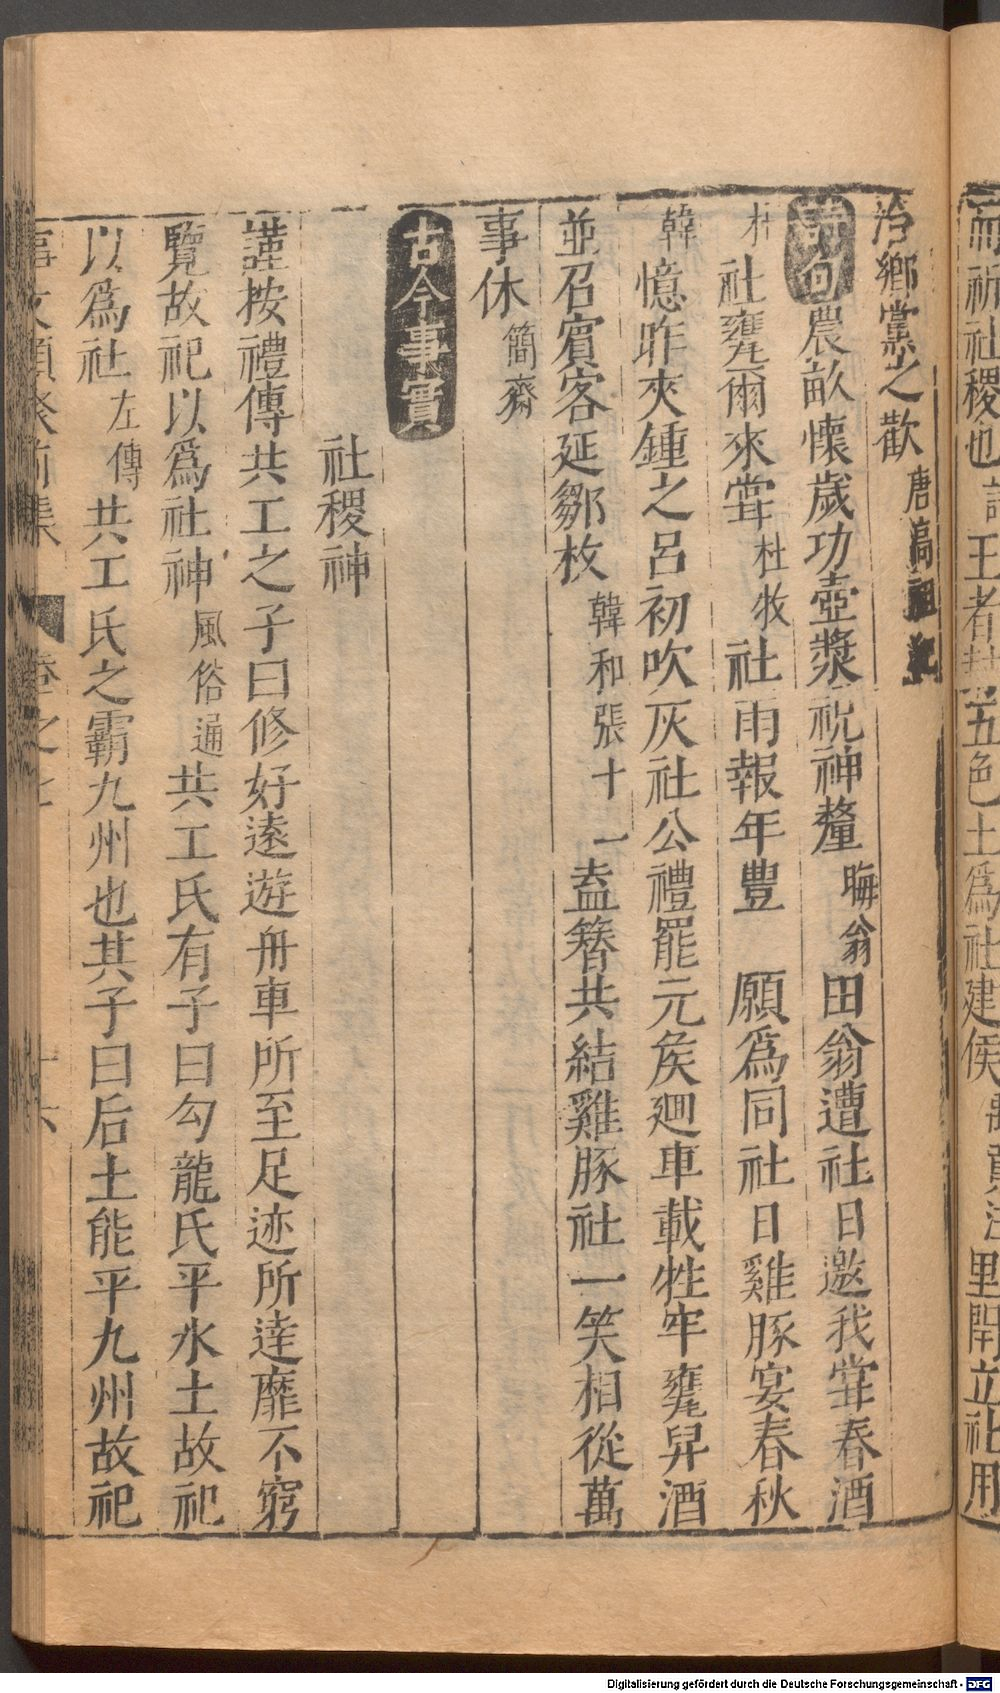 而祈社稷也
王者
五色土爲社建侯
里閈立社用
洽鄉黨之歡唐高祖
詩句農畝懷歲功壺漿祝神釐晦翁田翁遭社日邀我甞春酒
杜社甕爾來甞杜牧社雨報年豊願爲同社日雞豚宴春秋
韓憶昨夾鍾之呂初吹灰社公禮罷元矦廻車載牲牢甕舁酒
並召賓客延鄒枚韓和張十一盍簪共結雞豚社一笑相從萬
事休簡齋
古今事實
社稷神
謹按禮傳共工之子曰修好遠遊舟車所至足迹所逹靡不窮
覽故祀以爲社神風俗通共工氏有子曰勾龍氏平水土故祀
以爲社左傳共工氏之霸九州也其子曰后土能平九州故祀
事文類聚前集 卷之七 十六
Digitalisierung gefördert durch die Deutsche Forschungsgemeinschaft - DFG